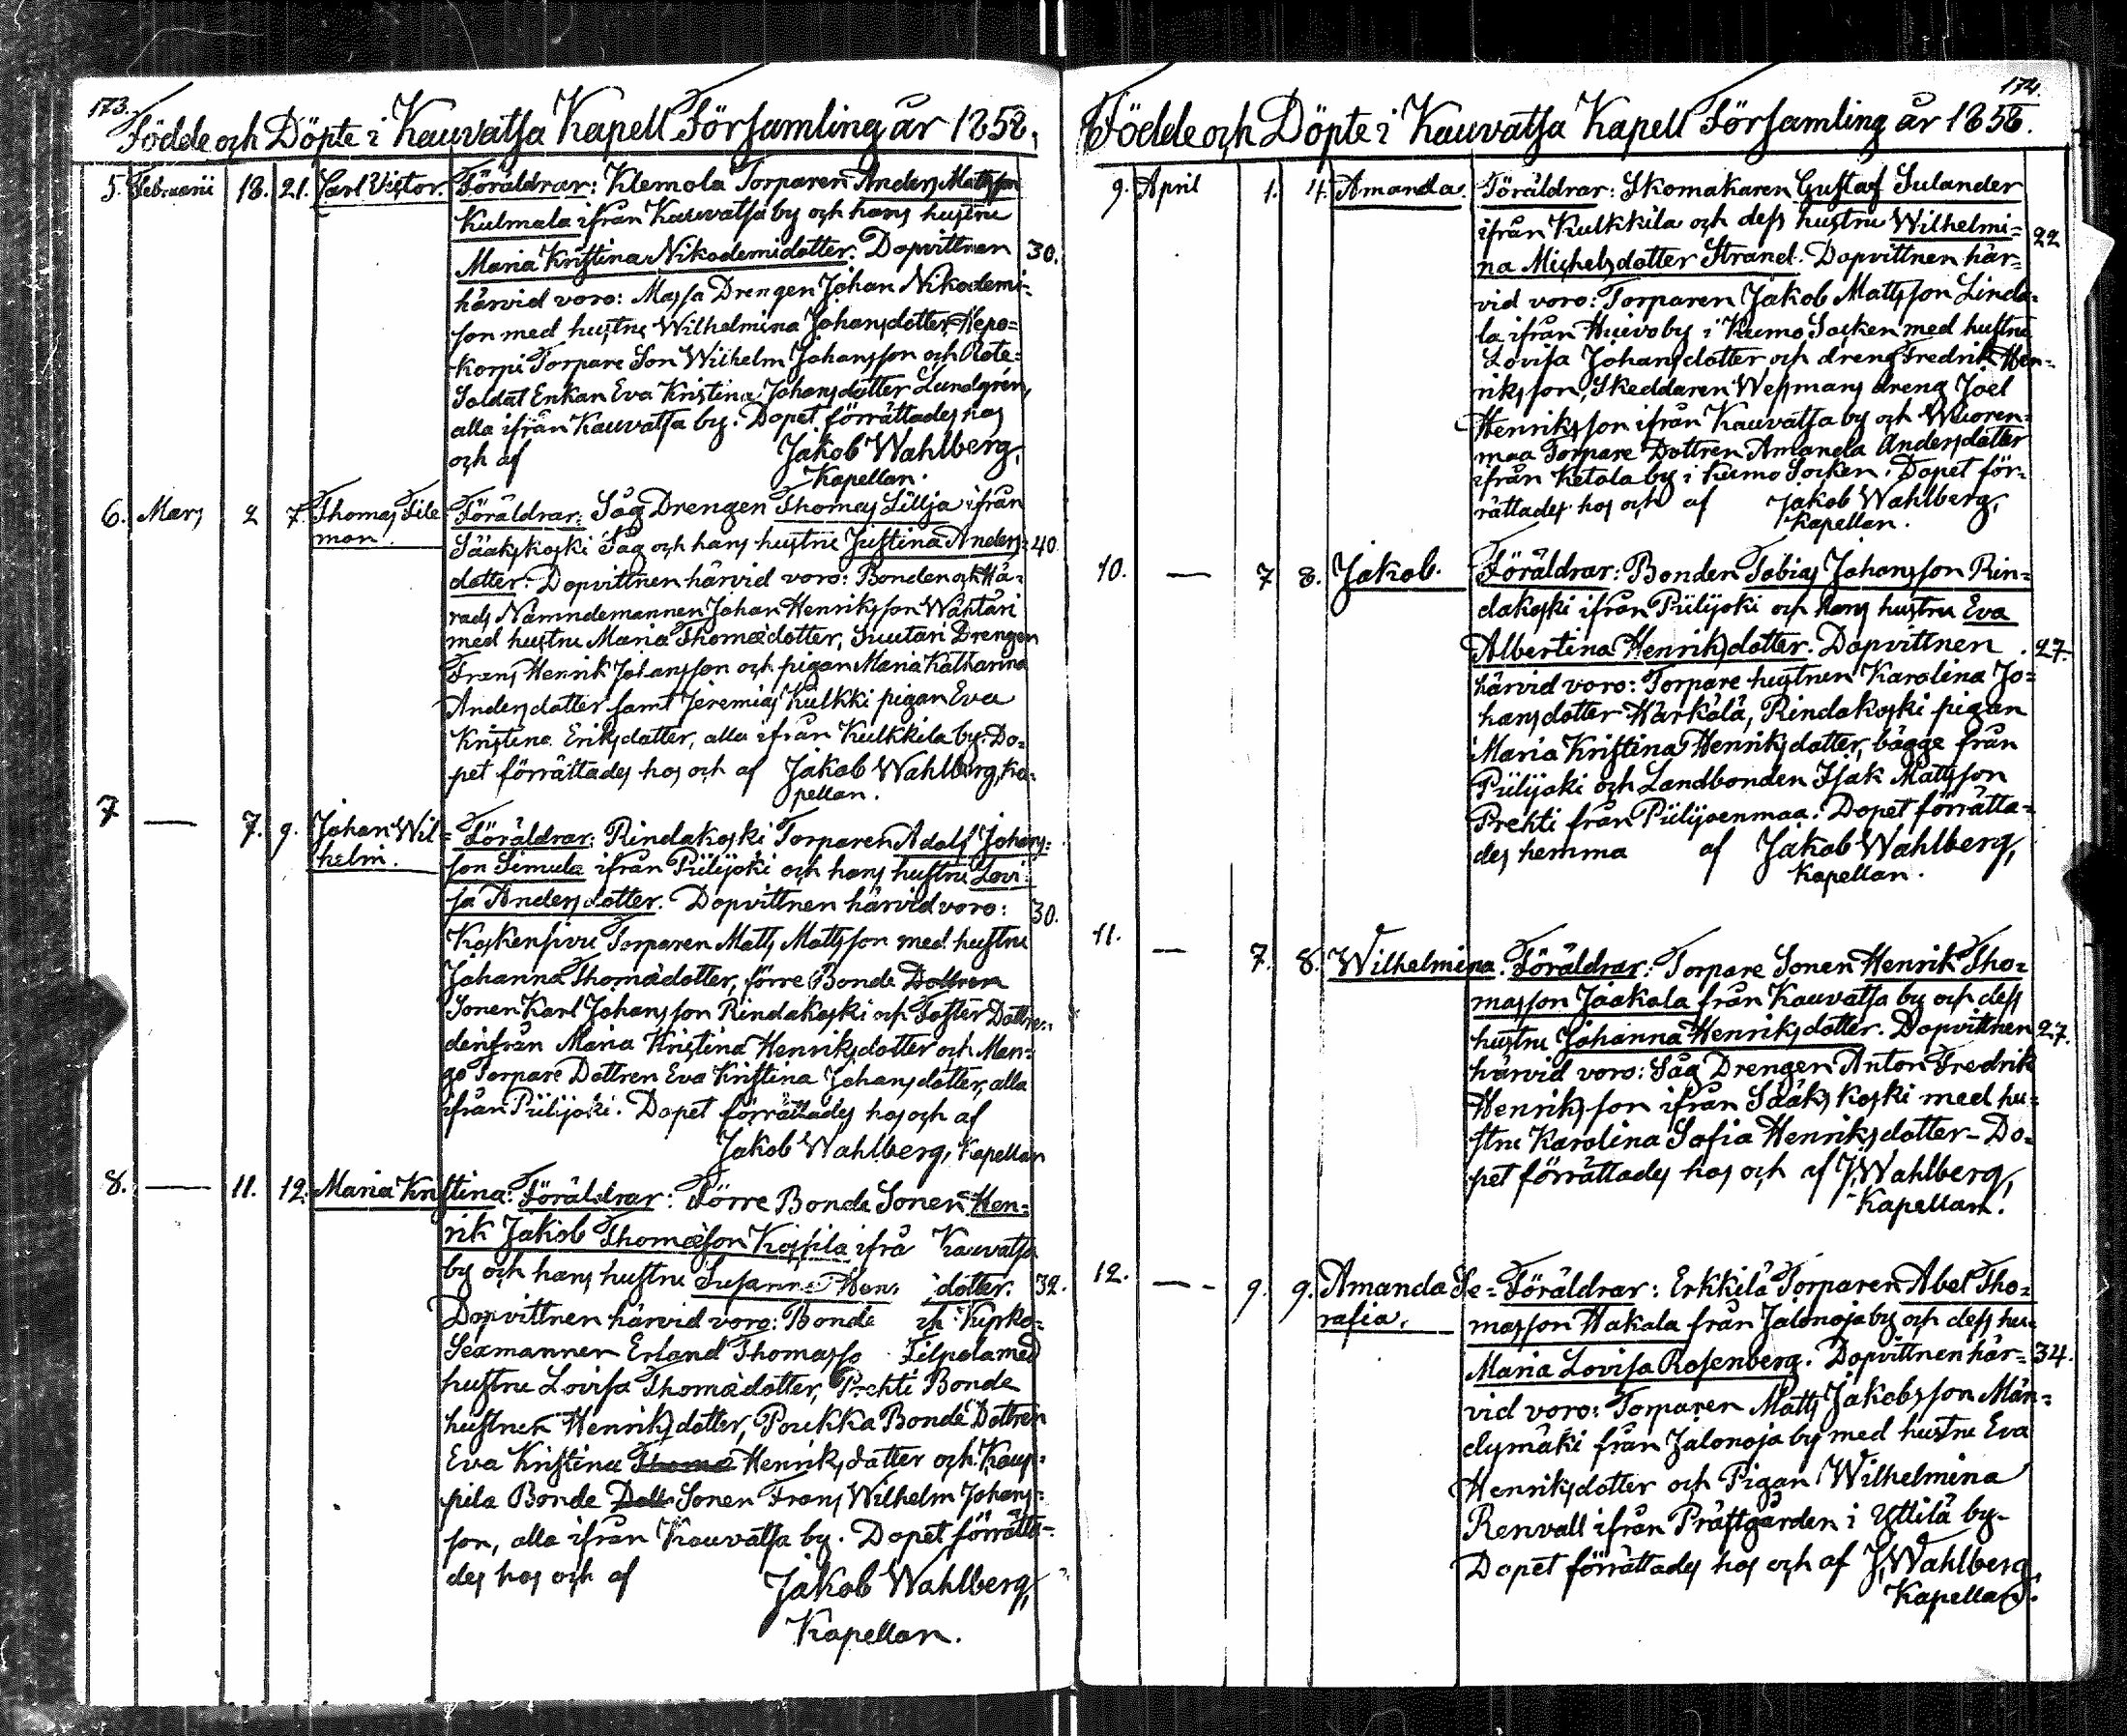 173.
Födde och Döpte i Kauvatsa Kapell Församling år 1858.
5. Februarii 18. 21. Carl Victor. Föräldrar: Klemola Torparen Anders Mattsson
Kulmala ifrån Kauvatsa by och hans hustru
Maria Kristina Nikodemidotter. Dopvittnen 30.
härvid voro: Massa Drengen Johan Nikodemi-
son med hustru Wilhelmina Johansdotter, Hepo=
korpi Torpare Son Wilhelm Johansson och Rote=
Soldat Enkan Eva Kristina Johansdotter Lundgrén,
alla ifrån Kauvatsa by. Dopet förrättades hos
och af Jakob Wahlberg,
Kapellan.
6. Mars 2 7. Thomas File Föräldrar: Såg Drengen Thomas Lillja ifrån
mon. Sääkskoski Såg och hans hustru Justina Anders= 40.
dotter. Dopvittnen härvid voro: Bonden och Hä-
rads Nämndemannen Johan Henriksson Wähtäri
med hustru Maria Thomædotter, Suutari Drengen
Frans Henrik Johansson och pigan Maria Katharina
Andersdotter samt Jeremias Kulkki pigan Eva
Kristina Eriksdotter, alla ifrån Kulkkila by. Do=
pet förrättades hos och af Jakob Wahlberg, Ka-
pellan.
7 — 7. 9. Johan Wil= Föräldrar: Rindakoski Torparen Adolf Johans=
helm. son Simula ifrån Piilijoki och hans hustru Lovi=
sa Andersdotter. Dopvittnen härvid voro: 30.
Koskensivu Torparen Matts Mattsson med hustru
Johanna Thomædotter, förre Bonde Dottren
Sonen Karl Johansson Rindakoski och Foster Dottren
derifrån Maria Kristina Henriksdotter och Man=
go Torpare Dottren Eva Kristina Johansdotter, alla
ifrån Piilijoki. Dopet förrättades hos och af
Jakob Wahlberg, Kapellan
8. — 11. 12. Maria Kristina. Föräldrar: Förre Bonde Sonen Hen=
rik Jakob Thomæson Koppila ifrå Kauvatsa
by och hans hustru Susanna Hen dotter. 32.
Dopvittnen härvid voro: Bonde ch Kyrko=
Sexmannen Erland Thomasso Filpola med
hustru Lovisa Thomædotter, Prekti Bonde
hustrun Henriksdotter, Poukka Bonde Dottren
Eva Kristina Thoma Henriksdotter och Kaup=
pila Bonde Dott Sonen Frans Wilhelm Johans=
son, alla ifrån Kauvatsa by. Dopet förrätta=
des hos och af Jakob Wahlberg,
Kapellan.
174.
Födde och Döpte i Kauvatsa Kapell Församling år 1858.
9. April 1. 4. Amanda. Föräldrar: Skomakaren Gustaf Sulander
ifrån Kulkkila och dess hustru Wilhelmi= 22
na Michelsdotter Strand. Dopvittnen här=
vid voro: Torparen Jakob Mattsson Linda=
la ifrån Huivo by i Kumo Socken med hustru
Lovisa Johansdotter och dreng Fredrik Hen=
riksson, Skeddaren Wessmans dreng Joel
Henriksson ifrån Kauvatsa by och Wuoren=
maa Torpare Dottren Amanda Andersdotter
ifrån Ketola by i Kumo Socken. Dopet för=
rättades hos och af Jakob Wahlberg,
Kapellan.
10. — 7 8. Jakob. Föräldrar: Bonden Tobias Johansson Rin=
dakoski ifrån Piilijoki och hans hustru Eva
Albertina Henriksdotter. Dopvittnen 27.
härvid voro: Torpare hustrun Karolina Jo=
hansdotter Härkälä, Rindakoski pigan
Maria Kristina Henriksdotter, bägge från
Piilijoki och Landbonden Isak Mattsson
Prekti från Piilijoenmaa. Dopet förrätta=
des hemma af Jakob Wahlberg,
Kapellan.
11. — 7. 8. Wilhelmina. Föräldrar: Torpare Sonen Henrik Tho=
masson Jaakola från Kauvatsa by och dess
hustru Johanna Henriksdotter. Dopvittnen 27.
härvid voro: Såg Drengen Anton Fredrik
Henriksson ifrån Sääkskoski med hu=
stru Karolina Sofia Henriksdotter – Do=
pet förrättades hos och af J. Wahlberg,
Kapellan.
12. — 9. 9. Amanda Se= Föräldrar: Erkkilä Torparen Abel Tho=
rafia. masson Hakala från Jalonoja by och dess hu.
Maria Lovisa Rosenberg. Dopvittnen här= 34.
vid voro: Torparen Matts Jakobsson Män=
dymäki från Jalonoja by med hustru Eva
Henriksdotter och Pigan Wilhelmina
Renvall ifrån Prästgården i Yttilä by.
Dopet förrättades hos och af J. Wahlberg,
Kapellan.